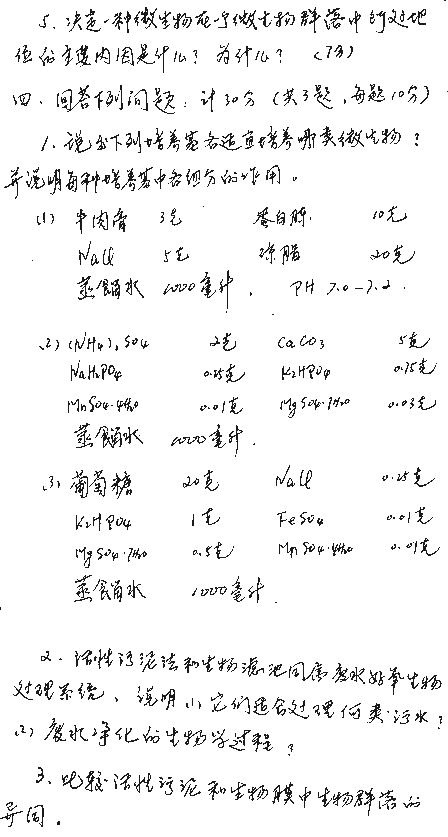 5、决定一种微生物在于微生物群落中的处地
位的主要内因是什么？为什么？（7分）
四、回答下列问题：计30分（共3题，每题10分）
1、说出下列培养基各适宜培养哪类微生物？
并说明每种培养基中各组分的作用。
(1) 牛肉膏 3克 蛋白胨 10克
NaCl 5克 琼脂 20克
蒸馏水 1000毫升， PH 7.0-7.2.
(2) (NH4)2SO4 2克 CaCO3 5克
NaH2PO4 0.25克 K2HPO4 0.75克
MnSO4·4H2O 0.01克 MgSO4·7H2O 0.03克
蒸馏水 1000毫升.
(3) 葡萄糖 20克 NaCl 0.25克
K2HPO4 1克 FeSO4 0.01克
MgSO4·7H2O 0.5克 MnSO4·4H2O 0.01克
蒸馏水 1000毫升
2、活性污泥法和生物滤池同属废水好氧生物
处理系统，说明(1)它们适合处理何类污水？
(2)废水净化的生物学过程？
3、比较活性污泥和生物膜中生物群落的
异同。